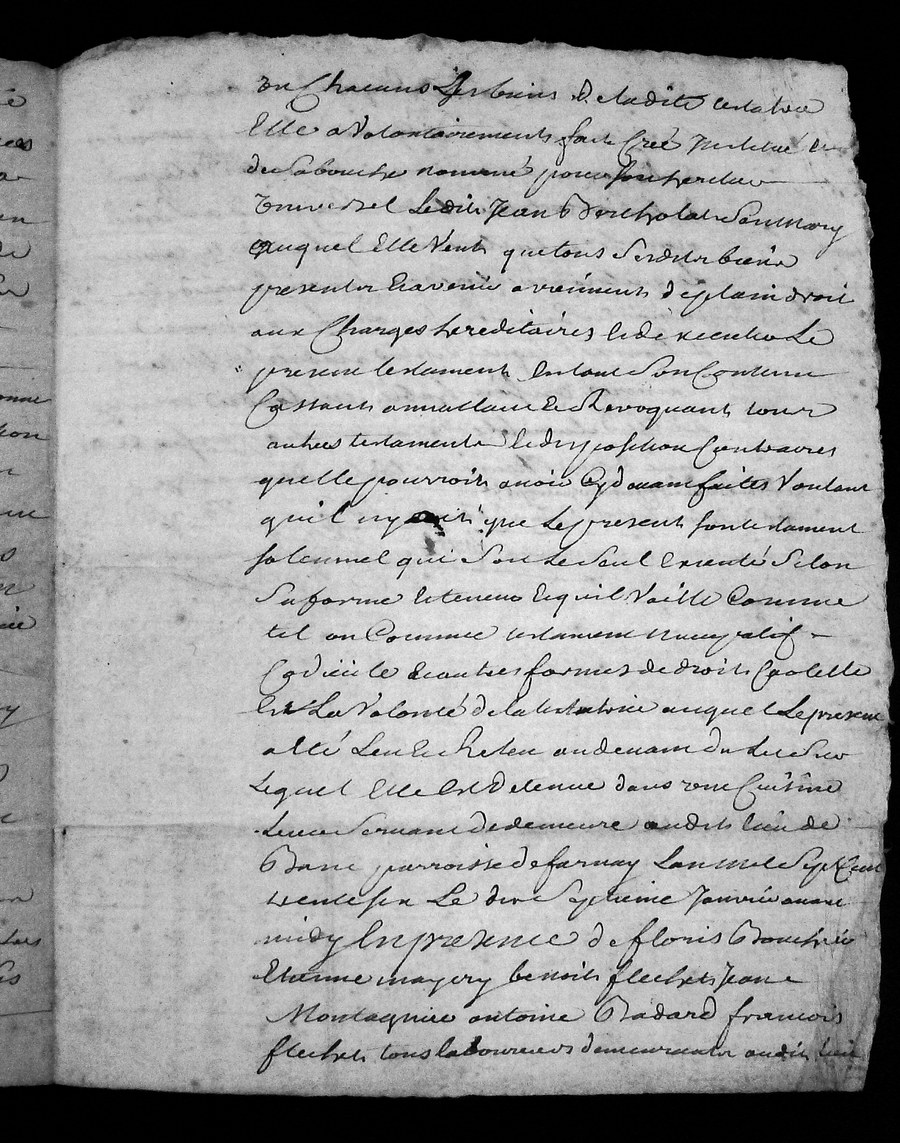 En Chacuns Ses biens De ladite testatrice
Elle a Volontairements fait Créé Institué et
de Sa bouche nommé pour son heritier
Universel Ledit Jean Bertholat Son Mary
auquel Elle Veut que tous Sesdits biens
presents Et avenir arreiments de plain droit
aux Charges hereditaires Et de
present testaments En tout Son Contenu
Cassants annullants Et Revoquants tous
autres testaments Et disposition Contraires
quelle pourroit avoir Cy devant faites Voulant
quil ny ait que Le present son testament
solemnel qui Soit Le Seul Executé Selon
Sa forme Et teneur Et quil Vaille Comme
tel ou Comme testament nuncupatif
Codicile Et autres formes de droit Car telle
Est La Volonté de la testatrice auquel Le present
a Eté Leu Et Releu au devant du Lit Sur
Lequel Elle Est Detenue dans une Cuisine
Luy Servant de demeure audit lieu de
Banc parroisse de farnay Lan mil Sept Cent
trente six Le dix Septieme Janvier avant
midy En presence de floris
Etienne mayery benoit flechet Jean
Montagnier antoine Badard francois
flechet tous laboureurs demeurants audit lieu